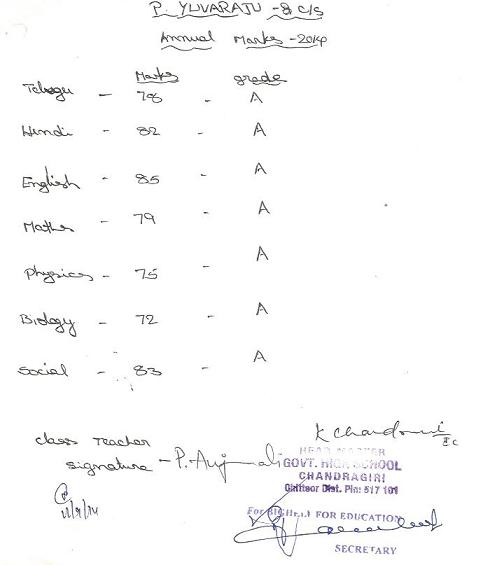 P. YUVARAJU - 8 C/S
Annual Marks - 2014
Marks grade
Telugu - 78 - A
Hindi - 82 - A
English - 85 - A
Maths - 79 - A
Physics - 75 - A
Biology - 72 - A
Social - 83 - A
K Chandra
class Teacher
signature - P. Anjmali
HEAD MASTER
GOVT. HIGH SCHOOL
CHANDRAGIRI
Chittoor Dist. Pin: 517 101
For FOR EDUCATION
SECRETARY